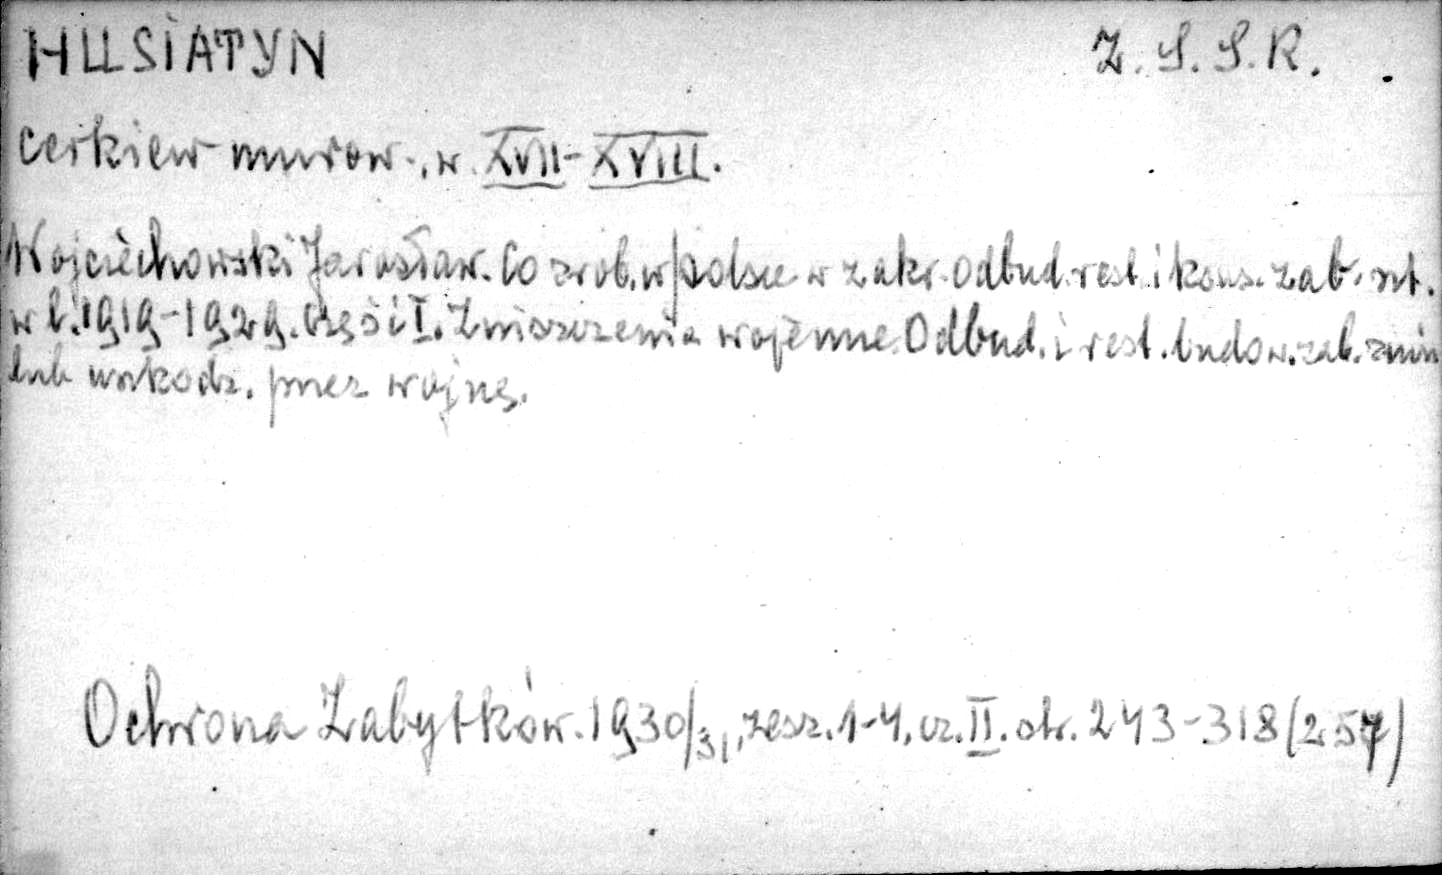 HUSIATYN Z.S.S.R.
cerkiew murow., w. XVII-XVIII.
Wojciechowski Jarosław. Co zrob. w Polsce w zakr. odbud. rest. i kons. zab. szt.
w l. 1919-1929. Część I. Zniszczenia wojenne. Odbud. i rest. budow. zab. znin
lub uszkodz. przez wojnę.
Ochrona Zabytków. 1930/31, zesz. 1-4, cz. II. str. 243-318 (257)